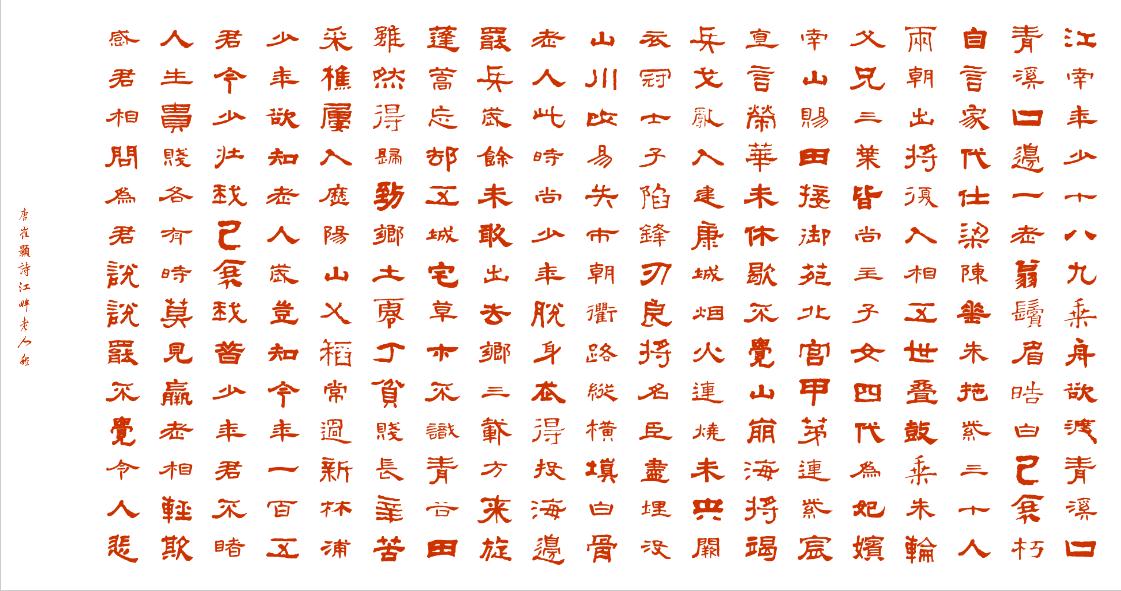 江南年少十八九乘舟欲渡青溪口
青溪口邊一老翁鬢眉皓白已衰朽
自言家代仕梁陳垂朱拖紫三十人
兩朝出將復入相五世疊鼓乘朱輪
父兄三葉皆尚主子女四代為妃嬪
南山賜田接御苑北宮甲第連紫宸
直言榮華未休歇不覺山崩海將竭
兵戈亂入建康城烟火連燒未央闕
衣冠士子陷鋒刃良將名臣盡埋沒
山川改易失市朝衢路縱橫填白骨
老人此時尚少年脫身走得投海邊
罷兵歲餘未敢出去鄉三載方来旋
蓬蒿忘却五城宅草木不識青谷田
雖然得歸到鄉土零丁貧賤長辛苦
采樵屢入歷陽山刈稻常過新林浦
少年欲知老人歲豈知今年一百五
君今少壯我已衰我昔少年君不睹
人生貴賤各有時莫見羸老相輕欺
感君相問為君說說罷不覺令人悲
唐崔顥詩江畔老人愁